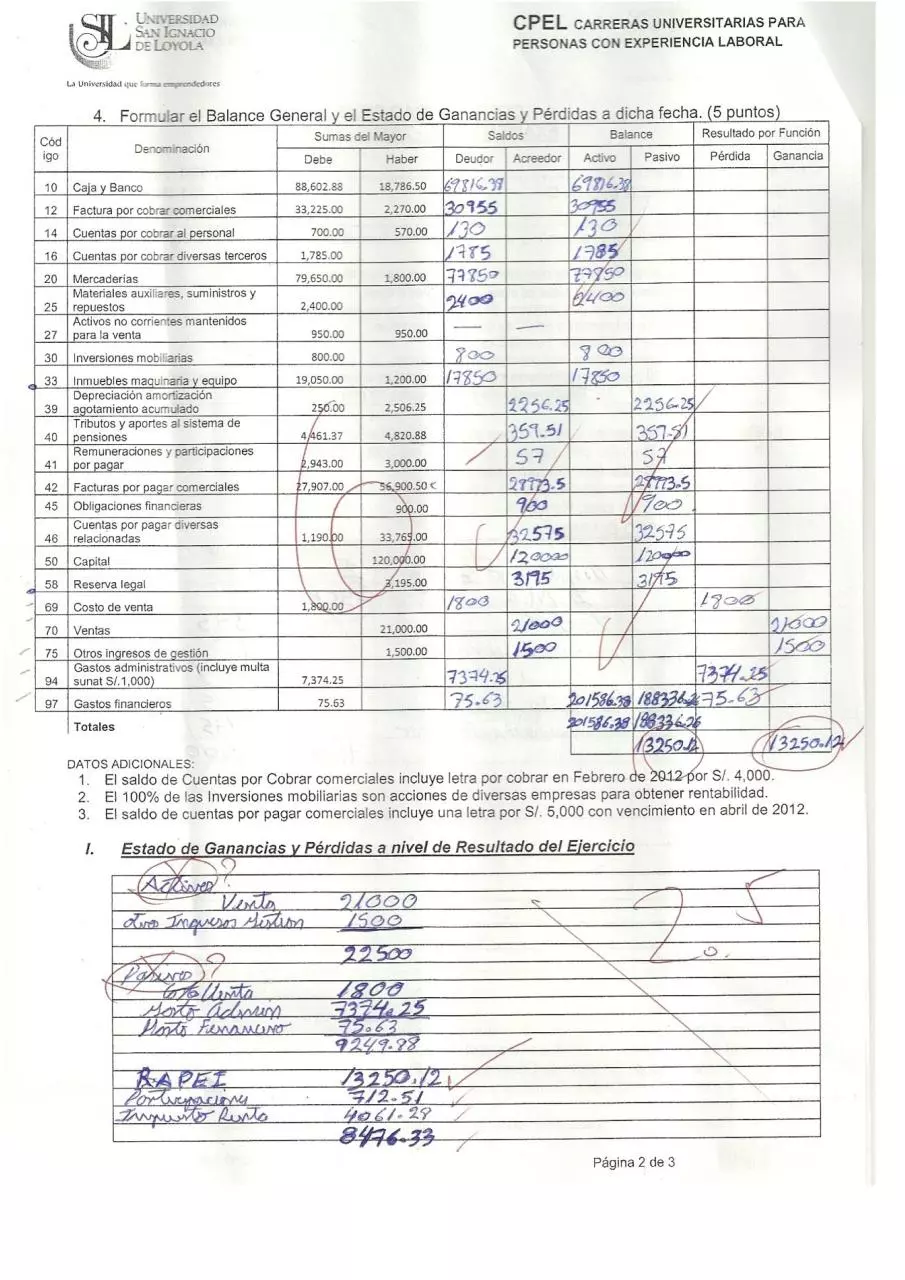 UNIVERSIDAD
SAN IGNACIO
DE LOYOLA
La Universidad que forma emprendedores
CPEL CARRERAS UNIVERSITARIAS PARA
PERSONAS CON EXPERIENCIA LABORAL
4. Formular el Balance General y el Estado de Ganancias y Pérdidas a dicha fecha. (5 puntos)
Cód igo Denominación Sumas del Mayor Saldos Balance Resultado por Función
Debe Haber Deudor Acreedor Activo Pasivo Pérdida Ganancia
10 Caja y Banco 88,602.88 18,786.50 69816.38 69816.38
12 Factura por cobrar comerciales 33,225.00 2,270.00 30955 30955
14 Cuentas por cobrar al personal 700.00 570.00 130 130
16 Cuentas por cobrar diversas terceros 1,785.00 1785 1785
20 Mercaderías 79,650.00 1,800.00 77850 77850
Materiales auxiliares, suministros y
25 repuestos 2,400.00 2400 2400
Activos no corrientes mantenidos
27 para la venta 950.00 950.00 — —
30 Inversiones mobiliarias 800.00 800 800
33 Inmuebles maquinaria y equipo 19,050.00 1,200.00 17850 17850
Depreciación amortización
39 agotamiento acumulado 250.00 2,506.25 2256.25 2256.25
Tributos y aportes al sistema de
40 pensiones 4,461.37 4,820.88 359.51 359.51
Remuneraciones y participaciones
41 por pagar 2,943.00 3,000.00 57 57
42 Facturas por pagar comerciales 27,907.00 56,900.50 28993.5 28993.5
45 Obligaciones financieras 900.00 900 900
Cuentas por pagar diversas
46 relacionadas 1,190.00 33,765.00 32575 32575
50 Capital 120,000.00 120000 120000
58 Reserva legal 3,195.00 3195 3195
69 Costo de venta 1,800.00 1800 1800
70 Ventas 21,000.00 21000 21000
75 Otros ingresos de gestión 1,500.00 1500 1500
Gastos administrativos (incluye multa
94 sunat S/.1,000) 7,374.25 7374.25 7374.25
97 Gastos financieros 75.63 75.63 201586.38 188336.26 75.63
Totales 201586.38 188336.26
13250.12 13250.12
DATOS ADICIONALES:
1. El saldo de Cuentas por Cobrar comerciales incluye letra por cobrar en Febrero de 2012 por S/. 4,000.
2. El 100% de las Inversiones mobiliarias son acciones de diversas empresas para obtener rentabilidad.
3. El saldo de cuentas por pagar comerciales incluye una letra por S/. 5,000 con vencimiento en abril de 2012.
I. Estado de Ganancias y Pérdidas a nivel de Resultado del Ejercicio
Activo ?
Venta 21000
Otro Ingresos Gestion 1500
22500
2.5
Pasivo ?
Cto Venta 1800
Gasto Admin 7374.25
Gasto Financiero 75.63
9249.88
RAPEI 13250.12
Participaciones 712.51
Impuesto Renta 4061.28
8476.33
Página 2 de 3